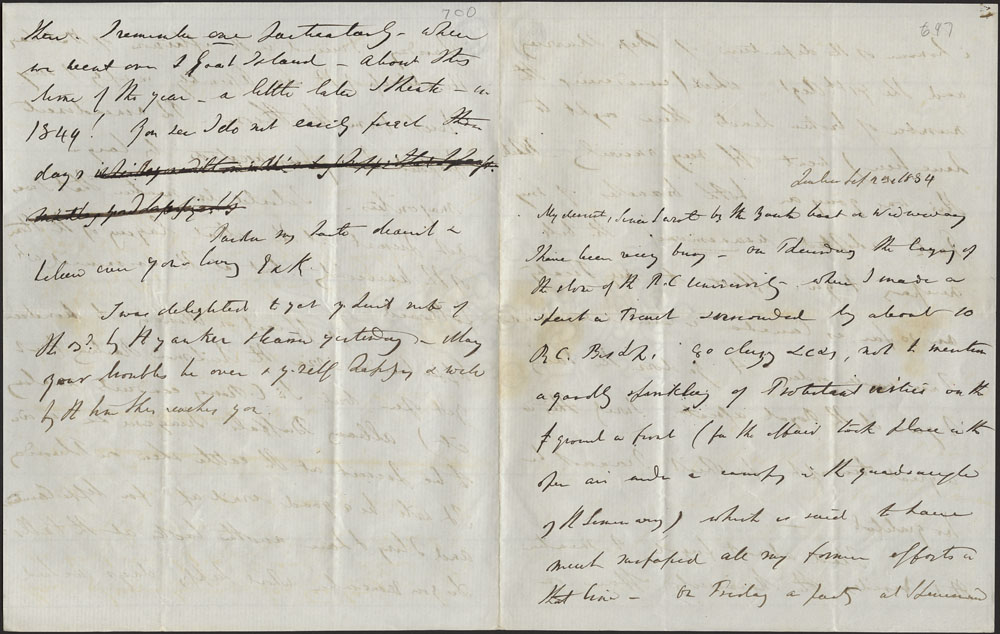 700
there. I remember one particularly - when
we went over to Goat Island - about this
time of the year - a little later I think - in
1849! You see I do not easily forget those
days
Pardon my
believe ever your loving E & K.
I was delighted to get yr short note of
the 23d by the yankee steamer yesterday - May
your troubles be over & yrself happy & well
by the time this reaches you
697
Quebec Sept 23d 1854
My dearest, Since I wrote by the York boat on Wednesday
I have been very busy - on Thursday the laying of
the stone of the R.C. university when I made a
speech in French surrounded by about 10
R.C. Bishops, 90 clergy &c &c, not to mention
a goodly sprinkling of Protestant on the
ground in front (for the affair took place in the
open air under a canopy in the quadrangle
of the Seminary) which is said to have
surpassed all my former efforts in
that line - on Friday a party at Spencerwood